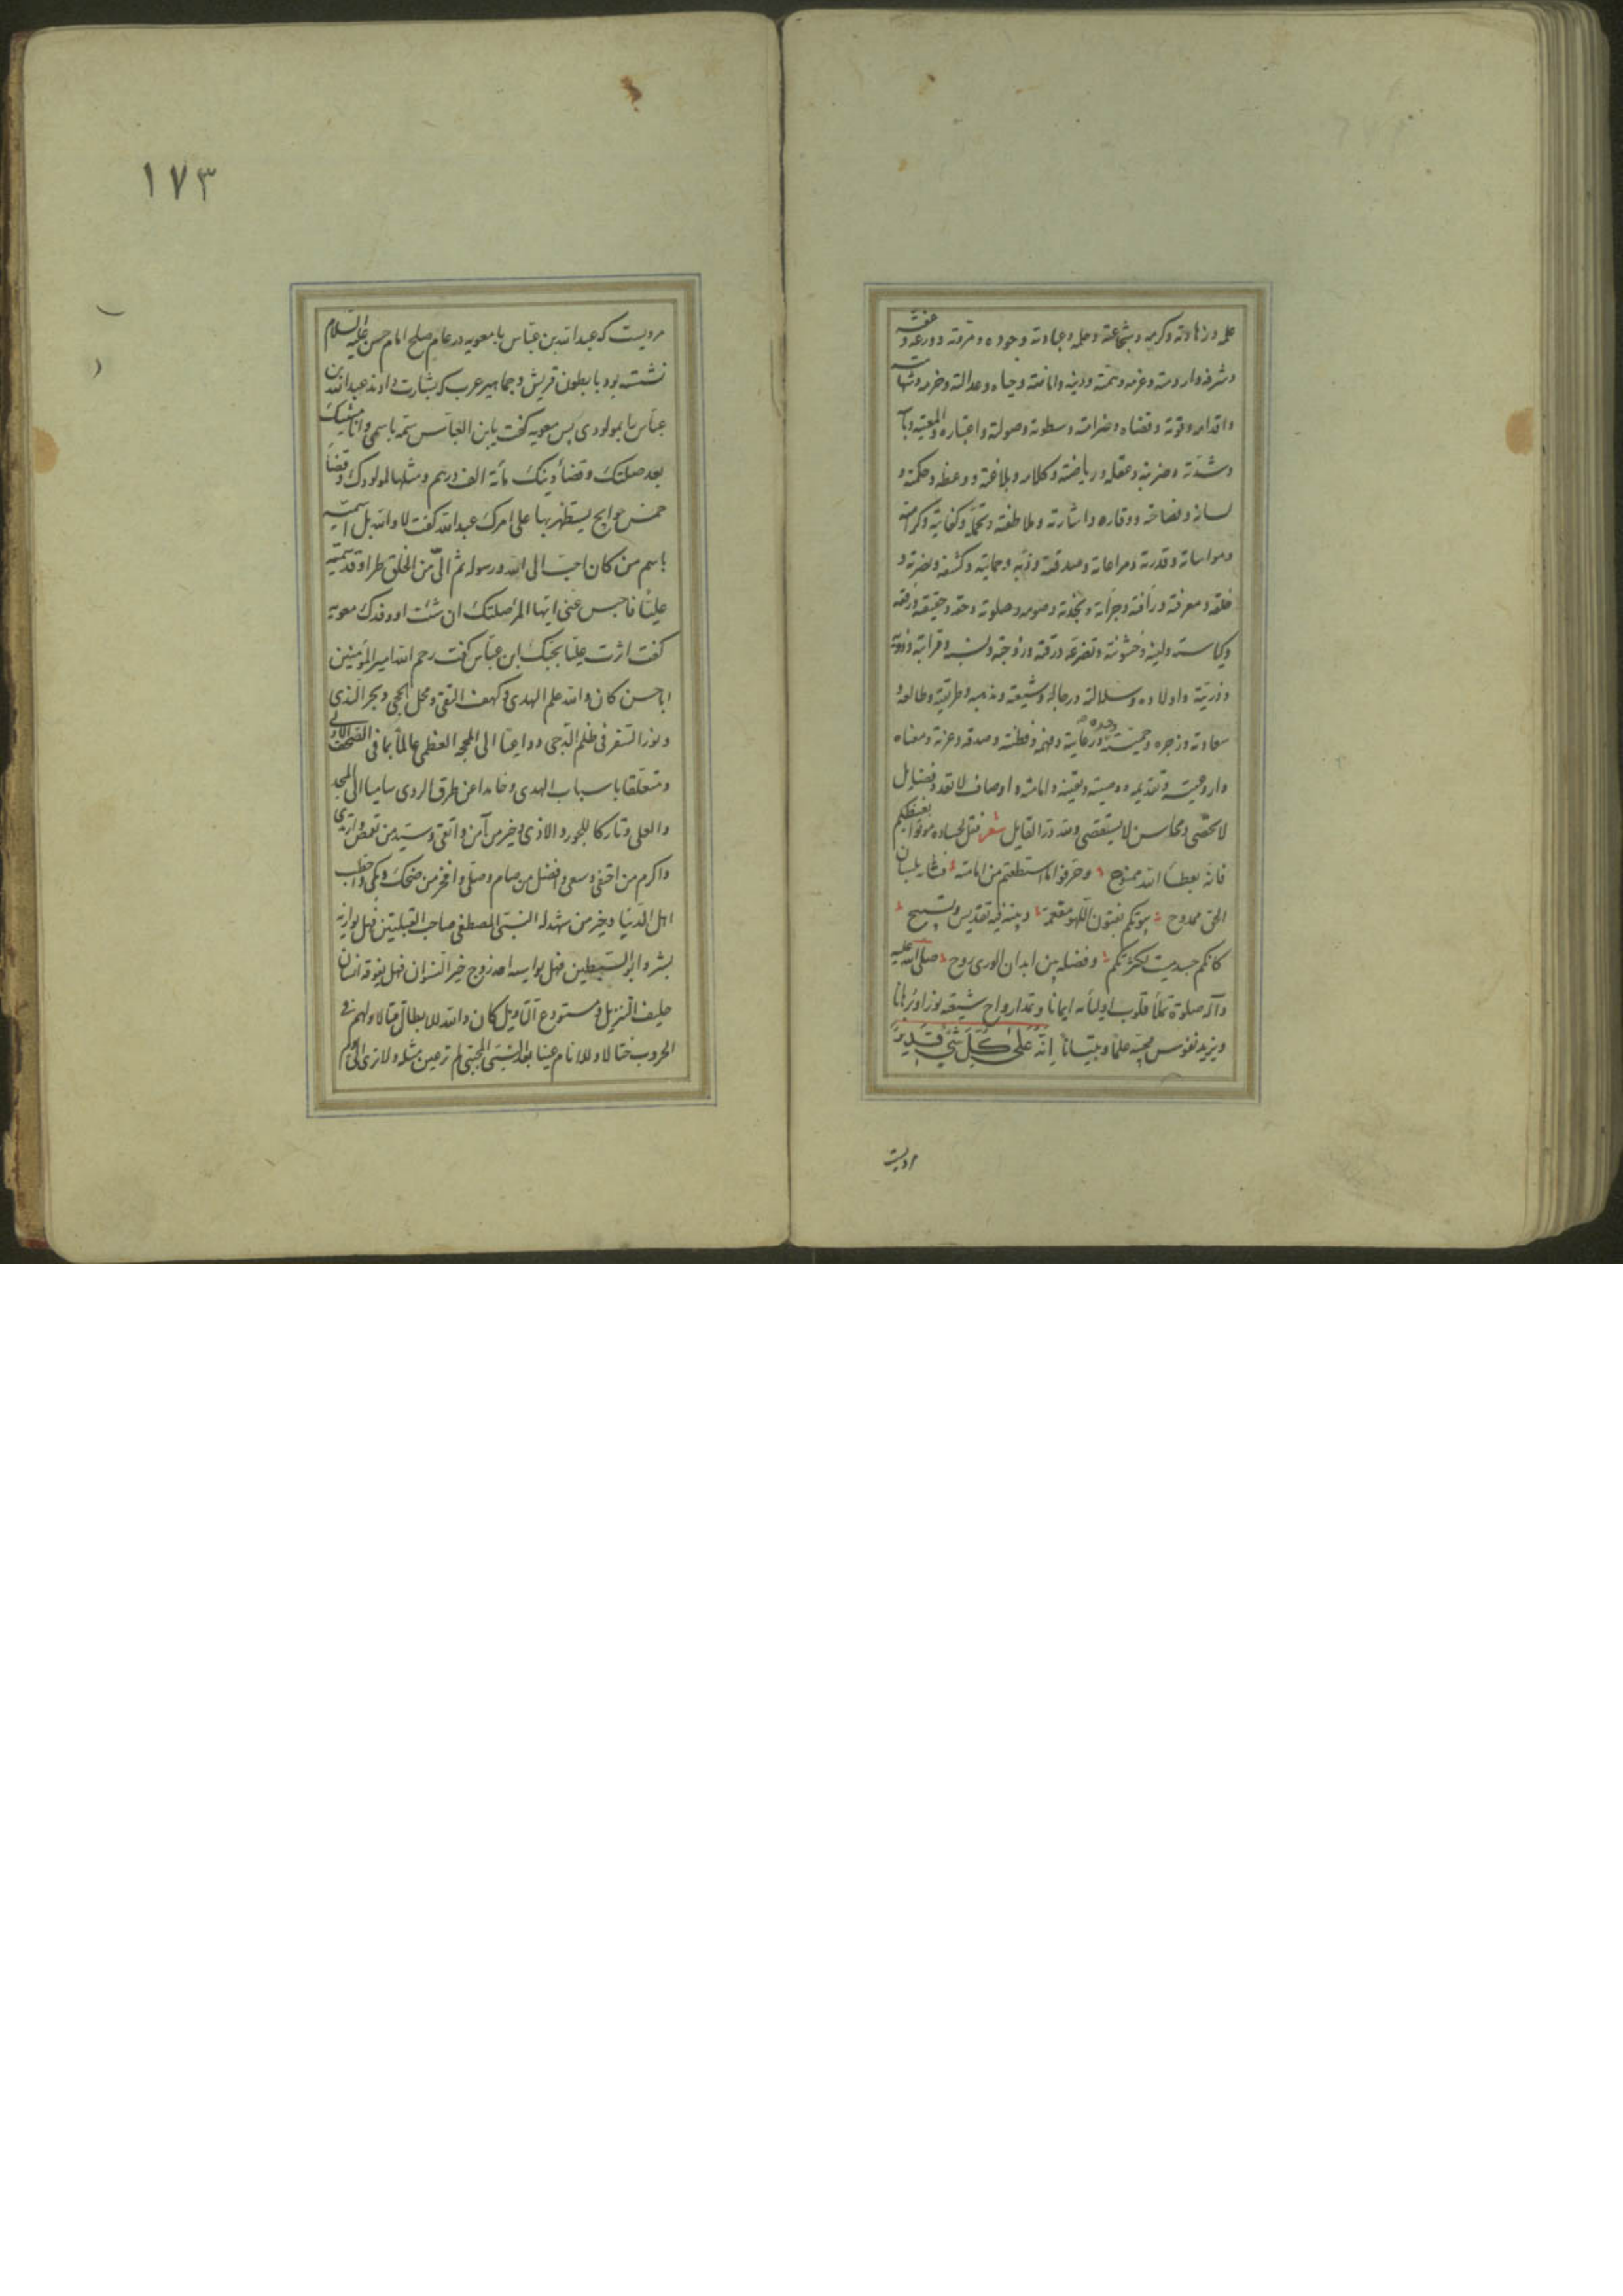 علمه وزهادته وكرمه وشجاعته وحلمه وعبادته وجوده ومروته وورعه وعفته
وشرفه وارومته وعزمه وهمته ودينه وامانته وحياه وعدالته وحزمه وشهامته
واقدامه وقوته وقضاه وضرامته وسطوته وصولته واعتباره والمعيته
وشدته وضربه وعقله ورياضته وكلامه وبلاغته ووعظه وحكمته و
لسانه وفصاحته ووقاره واشارته وملاطفته وتحمله وكفايته وكرامته
ومواساته وقدرته ومراعاته وصدقته وحمايته وكشفه ونصرته و
خلقه ومعرفته ورأفته وجرأته ونجدته وصومه وصلوته وحقه وحقيقته ورفقه
وكياسته ولينه وخشونته وتضرعه ورقته وزوجته ونسبه وقرابته
وذريته واولاده وسلالته ورجاله وشيعته ومذهبه وطريقته وطالعه و
سعادته وزجره وحميته ورعايته وفهمه وفطنته وصدقه وعزته ومعناه
وتقديمه ووصيته ويقينه وامامته واوصاف لا تعد وفضايل
لا تحصى ومحاسن لا يستقصى ولله در القايل شعر فقل لحساده موتوا بغيظكم
فانه بعطاء الله ممنوح وحرفوا ما استطعتم من امامته فشانه بلسان
الحق ممدوح بيوتكم بفنون اللهو مفعمة وبيته فيه تقديس وتسبيح
كانكم جسد ميت لكثرتكم وفضله بين ابدان الورى روح صلى الله عليه
وآله صلوة تملأ قلوب اوليائه ايمانا وتمد ارواح شيعته نورا وبرهانا
ويزيد نفوس محبيه علما وبيانا انه على كل شئ قدير
مرويست
١٧٣
مرويست كه عبدالله بن عباس با معويه در عام صلح امام حسن عليه السلام
نشسته بود با بطون قريش وجماهير عرب كه بشارت دادند عبدالله بن
عباس را بمولودى پس معويه كفت يابن العباس سمه باسمى وانا مشيك
بعد صلتك وقضاء دينك مأة الف درهم ومثلها لمولودك وقضاء
خمس حوايج يستظهر بها على امرك عبدالله كفت لا والله بل اسميه
باسم من كان احب الى الله ورسوله ثم الى من الخلق طرا وقد سميته
عليا فاحبس عنى ايها المرء صلتك ان شئت او رفدك معويه
كفت اثرت عليا بحبك ابن عباس كفت رحم الله امير المؤمنين
اباحسن كان والله علم الهدى وكهف التقى ومحل الحجى وبحر الندى
ونور السفر فى ظلم الدجى وداعيا الى المحجة العظمى عالما بما فى الصحف الاولى
ومتعلقا باسباب الهدى وحائدا عن طرق الردى ساميا الى المجد
والعلى وتاركا للجور والاذى وخير من آمن واتقى وسيد من تقمص وارتدى
واكرم من احتفى وسعى وافضل من صام وصلى وافخر من ضحك وبكى واخطب
اهل الدنيا وخير من شهد له النبى المصطفى صاحب القبلتين فهل يوازيه
بشر وابو السبطين فهل يواسيه احد زوج خير النسوان فهل يفوقه انسان
حليف التنزيل ومستودع التاويل كان والله للابطال قتالا ولهم فى
الحروب ختالا وللانام عينا بعد النبى المجتبى لم تر عين مثله ولا ترى الى يوم